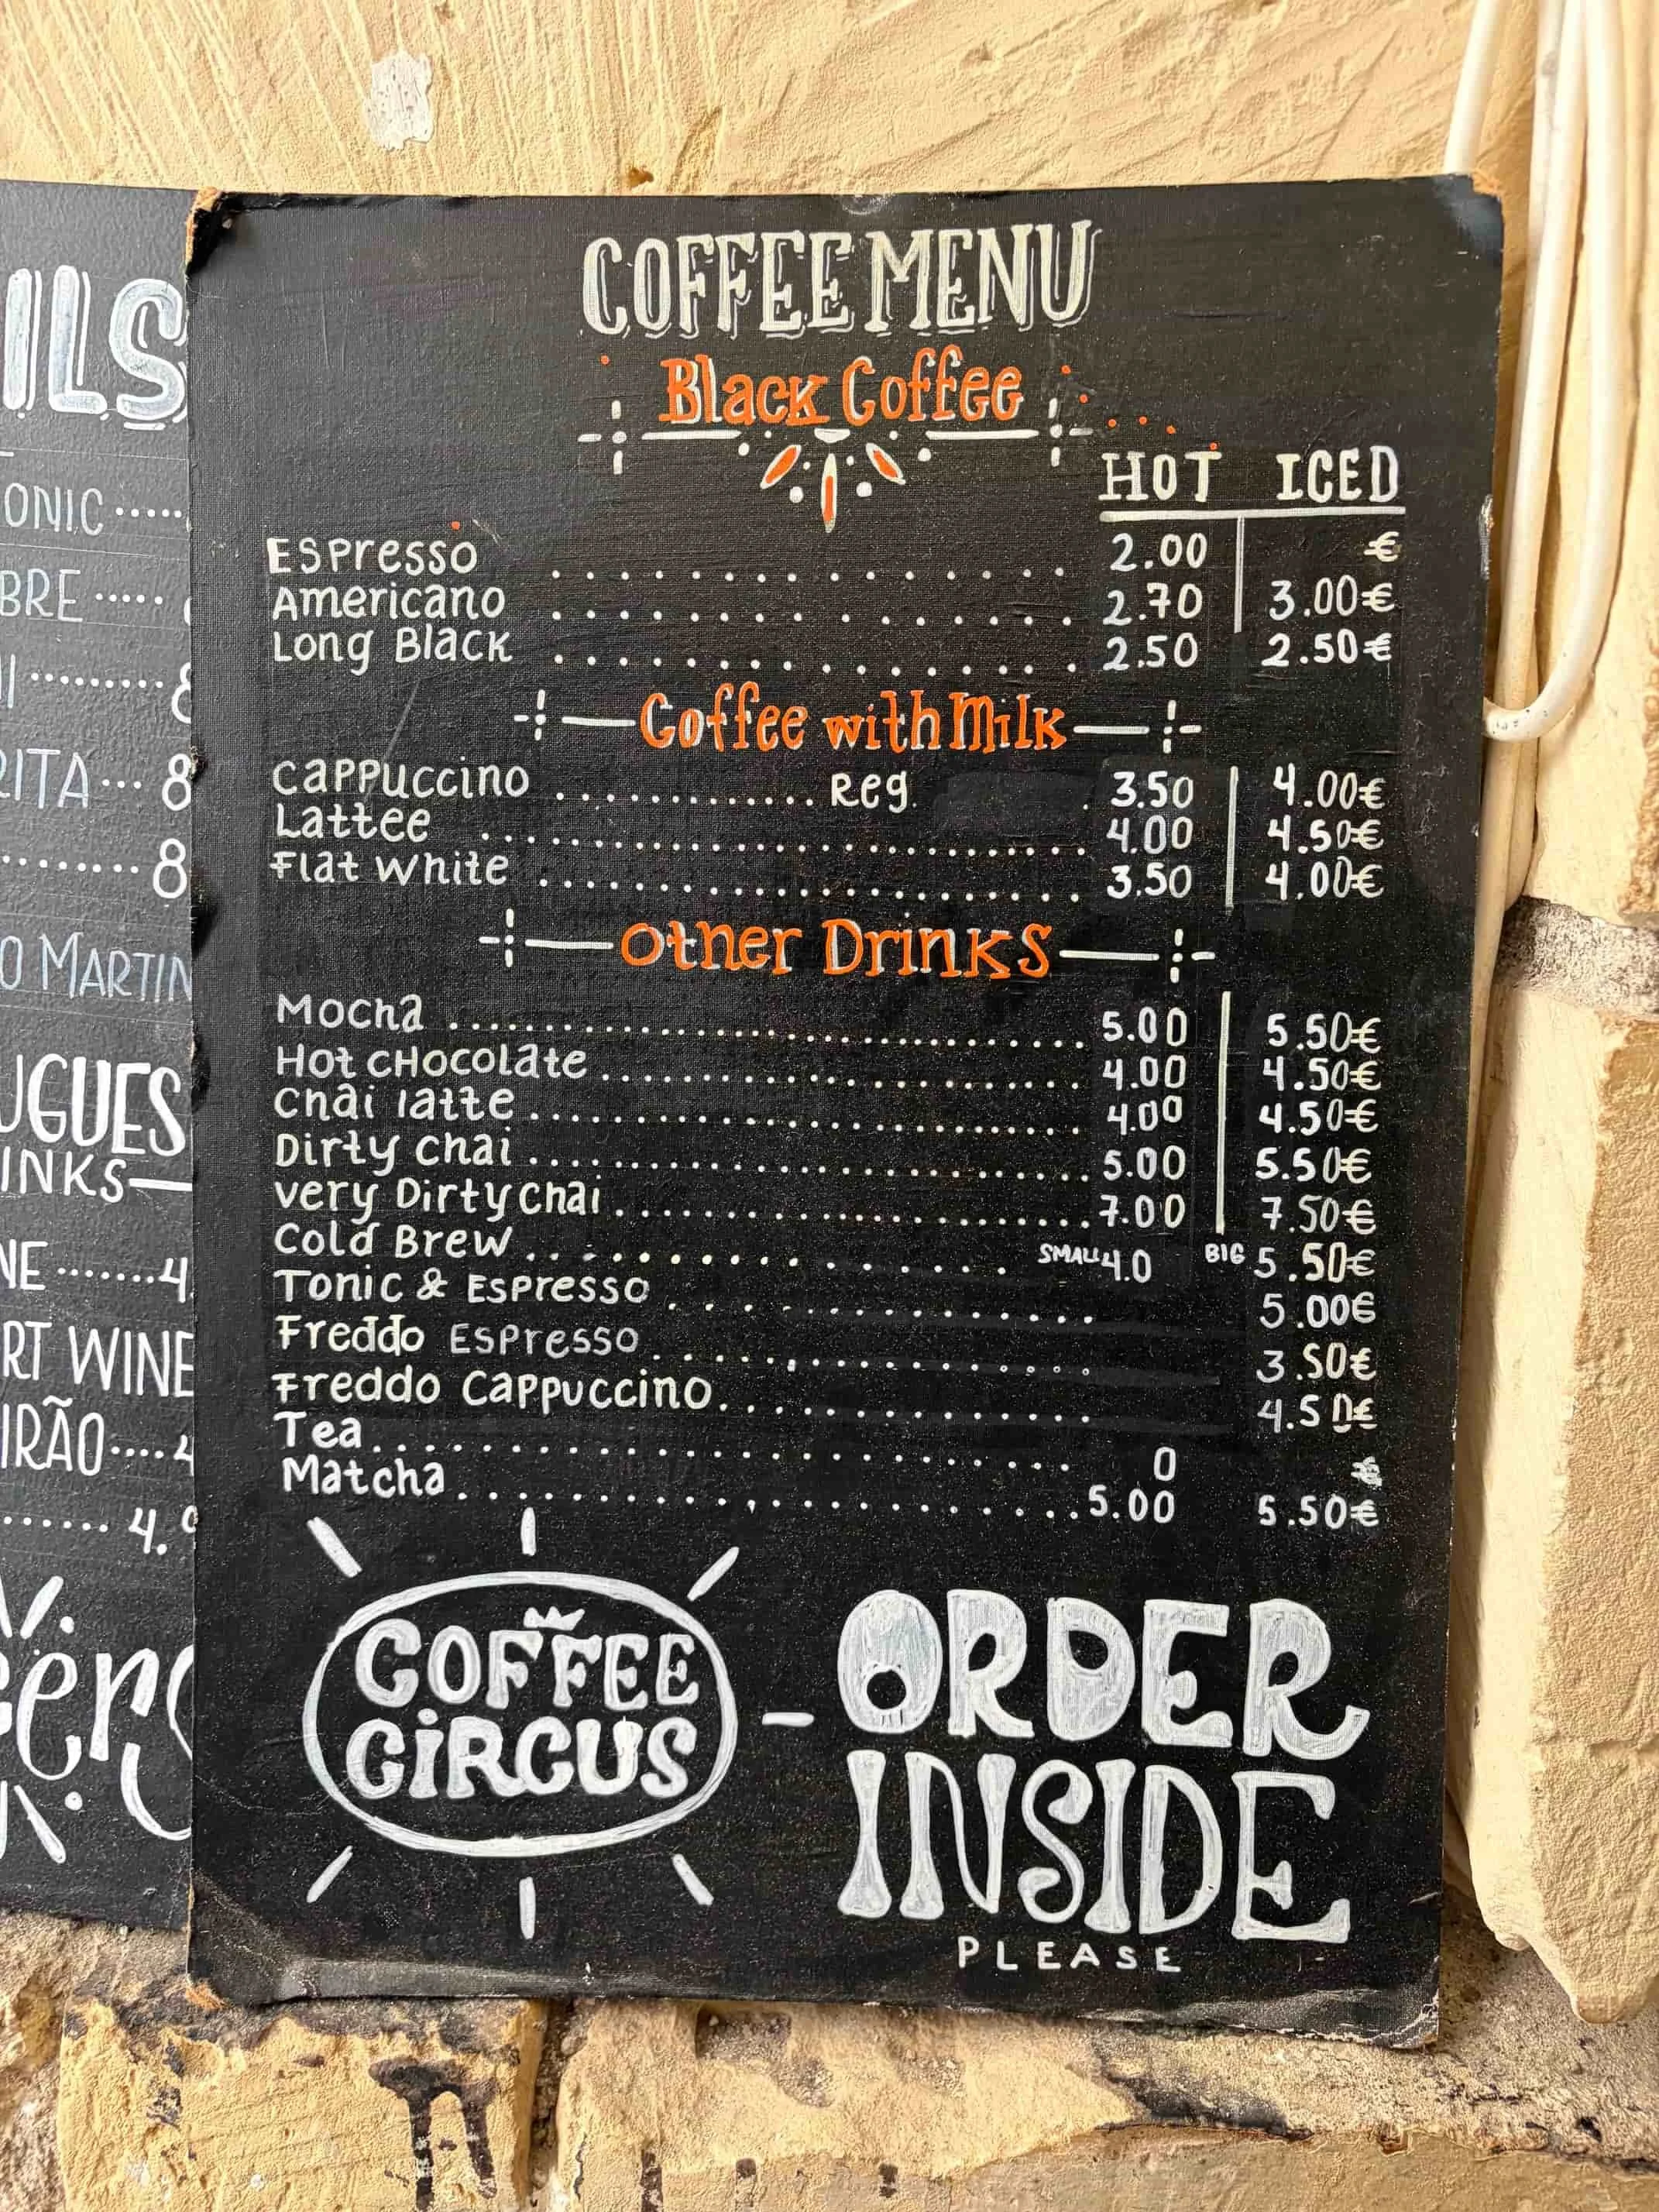 ILS
ONIC .....
BRE .....
I ......... 8
RITA ... 8
........ 8
O MARTIN
UGUES
INKS
NE ........ 4.
RT WINE
IRÃO ....
...... 4.9
COFFEE MENU
Black Coffee
HOT ICED
Espresso ............... 2.00 €
Americano ............... 2.70 3.00€
Long Black ............... 2.50 2.50€
Coffee with Milk
Cappuccino ............. Reg. 3.50 4.00€
Lattee ............... 4.00 4.50€
Flat White ............... 3.50 4.00€
Other Drinks
Mocha ............... 5.00 5.50€
Hot CHocolate ............... 4.00 4.50€
Chai latte ............... 4.00 4.50€
Dirty Chai ............... 5.00 5.50€
very Dirty Chai ............... 7.00 7.50€
Cold Brew ............... SMALL 4.0 BIG 5.50€
Tonic & Espresso ............... 5.00€
Freddo Espresso ............... 3.50€
Freddo Cappuccino ............... 4.50€
Tea ............... 0 €
Matcha ............... 5.00 5.50€
COFFEE
CiRCUS
- ORDER
INSIDE
PLEASE